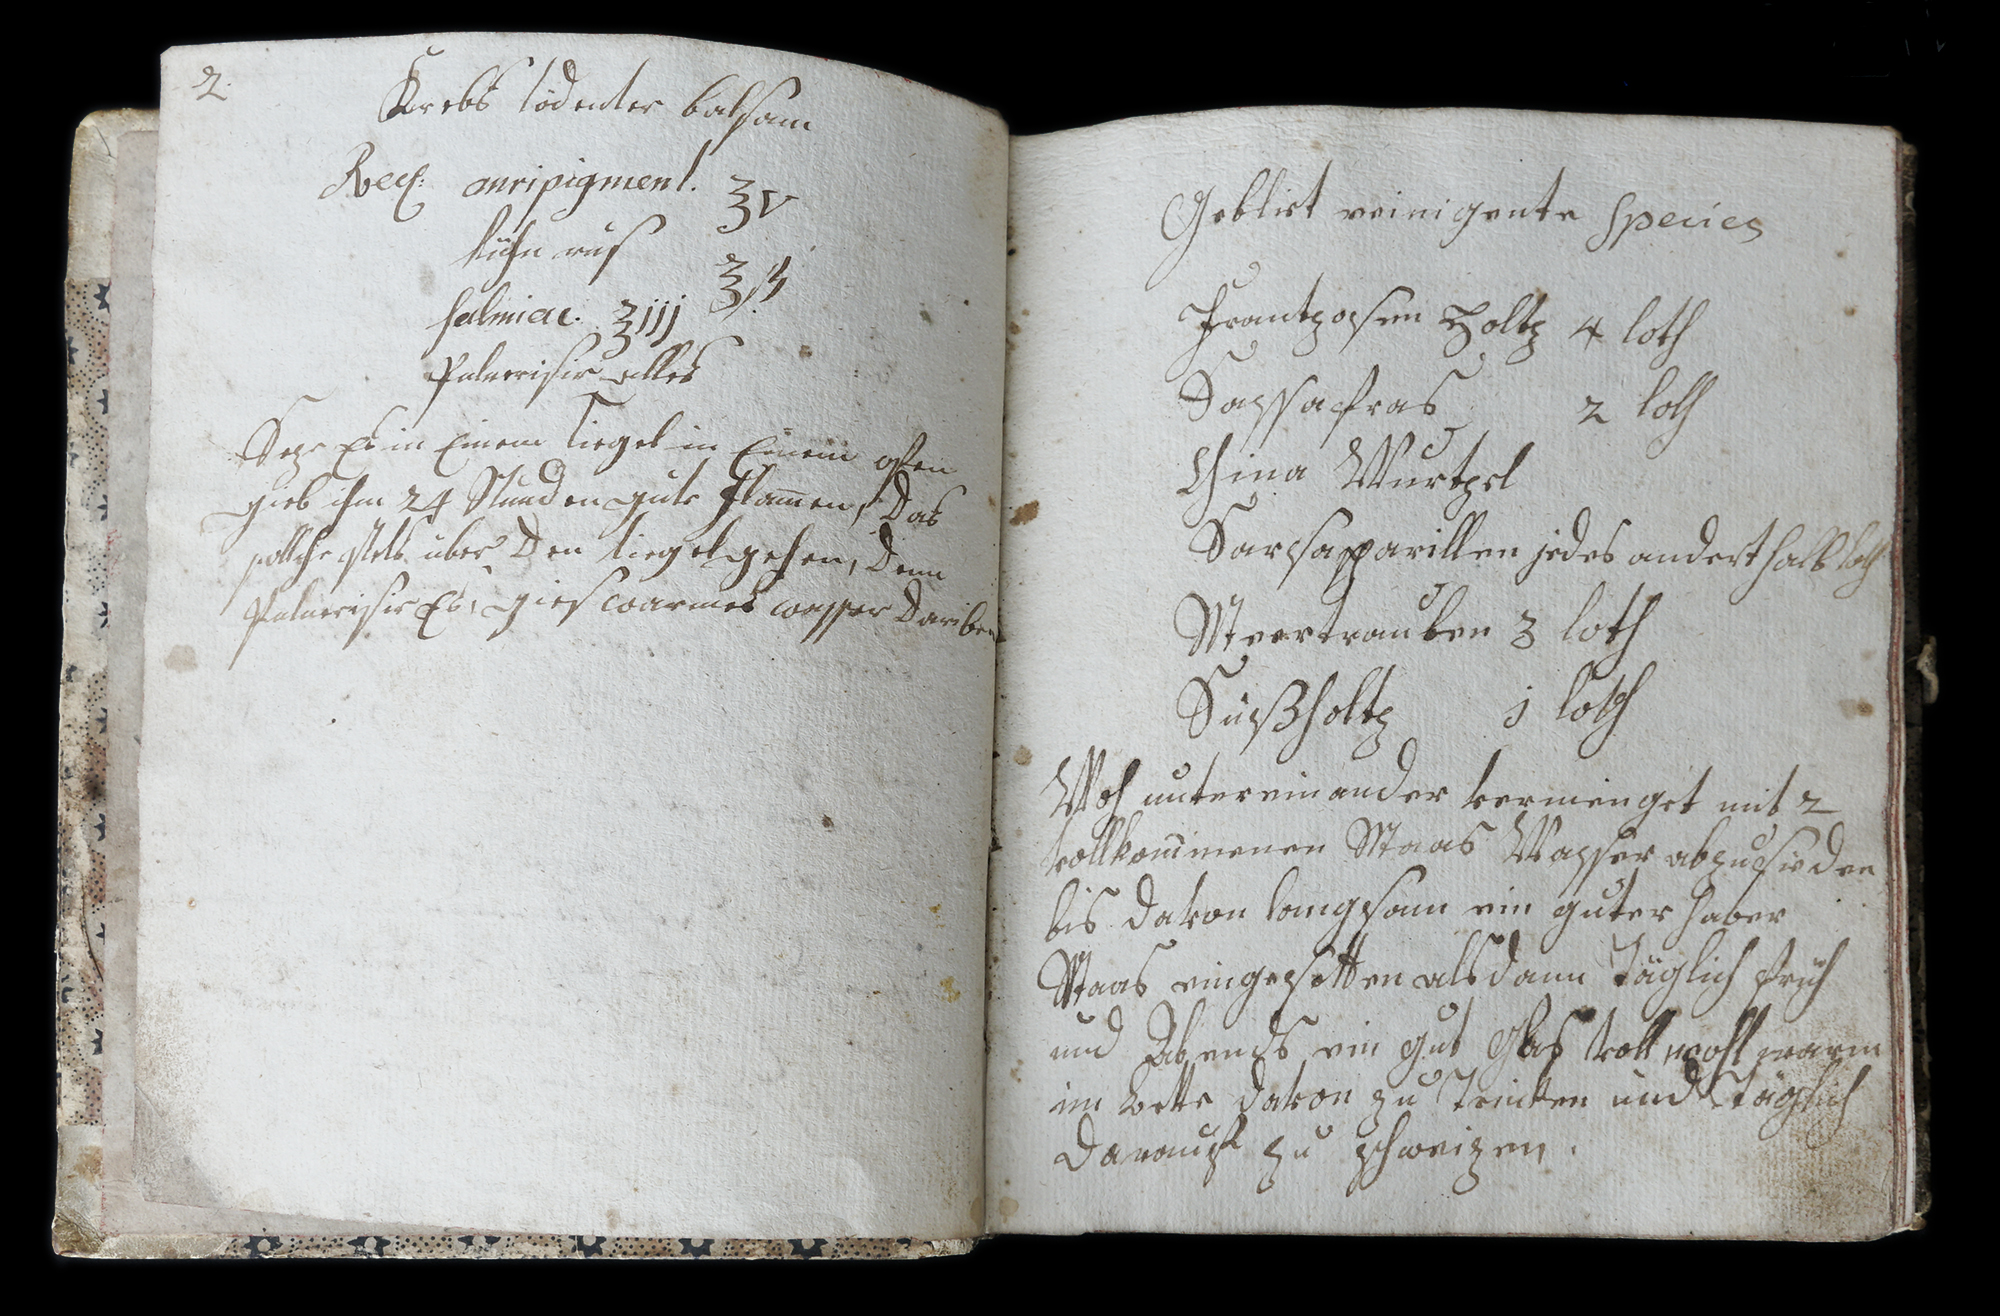 2.
Krebs tödenter balsam
Rec: auripigment. ʒv
kühn rus ʒß
salmiac. ʒjjj
Pulverisir alles
Seze Es in Einem tiegel in Einem ofen
gieb ihm 24 Stunden gute flam̄en, Das
solche stets über Den tiegel gehen, Denn
Pulverisir Es, gies warmes wasser Dariber
Geblist reinigente Species
Frantzosen Holtz 4 loth
Sassafras 2 loth
China Wurtzel
Sarsapparillen jedes anderthalb loth
Meertrauben 3 loth
Süßholtz j loth
Woh untereinander vermenget mit 2
vollkom̄menen Maas Wasser abzusieden
bis davon langsam ein guter haber
Maas eingesotten alsdann täglich früh
und Abends ein gut Glas voll wohl warm
im Bette davon zu Trinken und täglich
darauf zu schweizen.